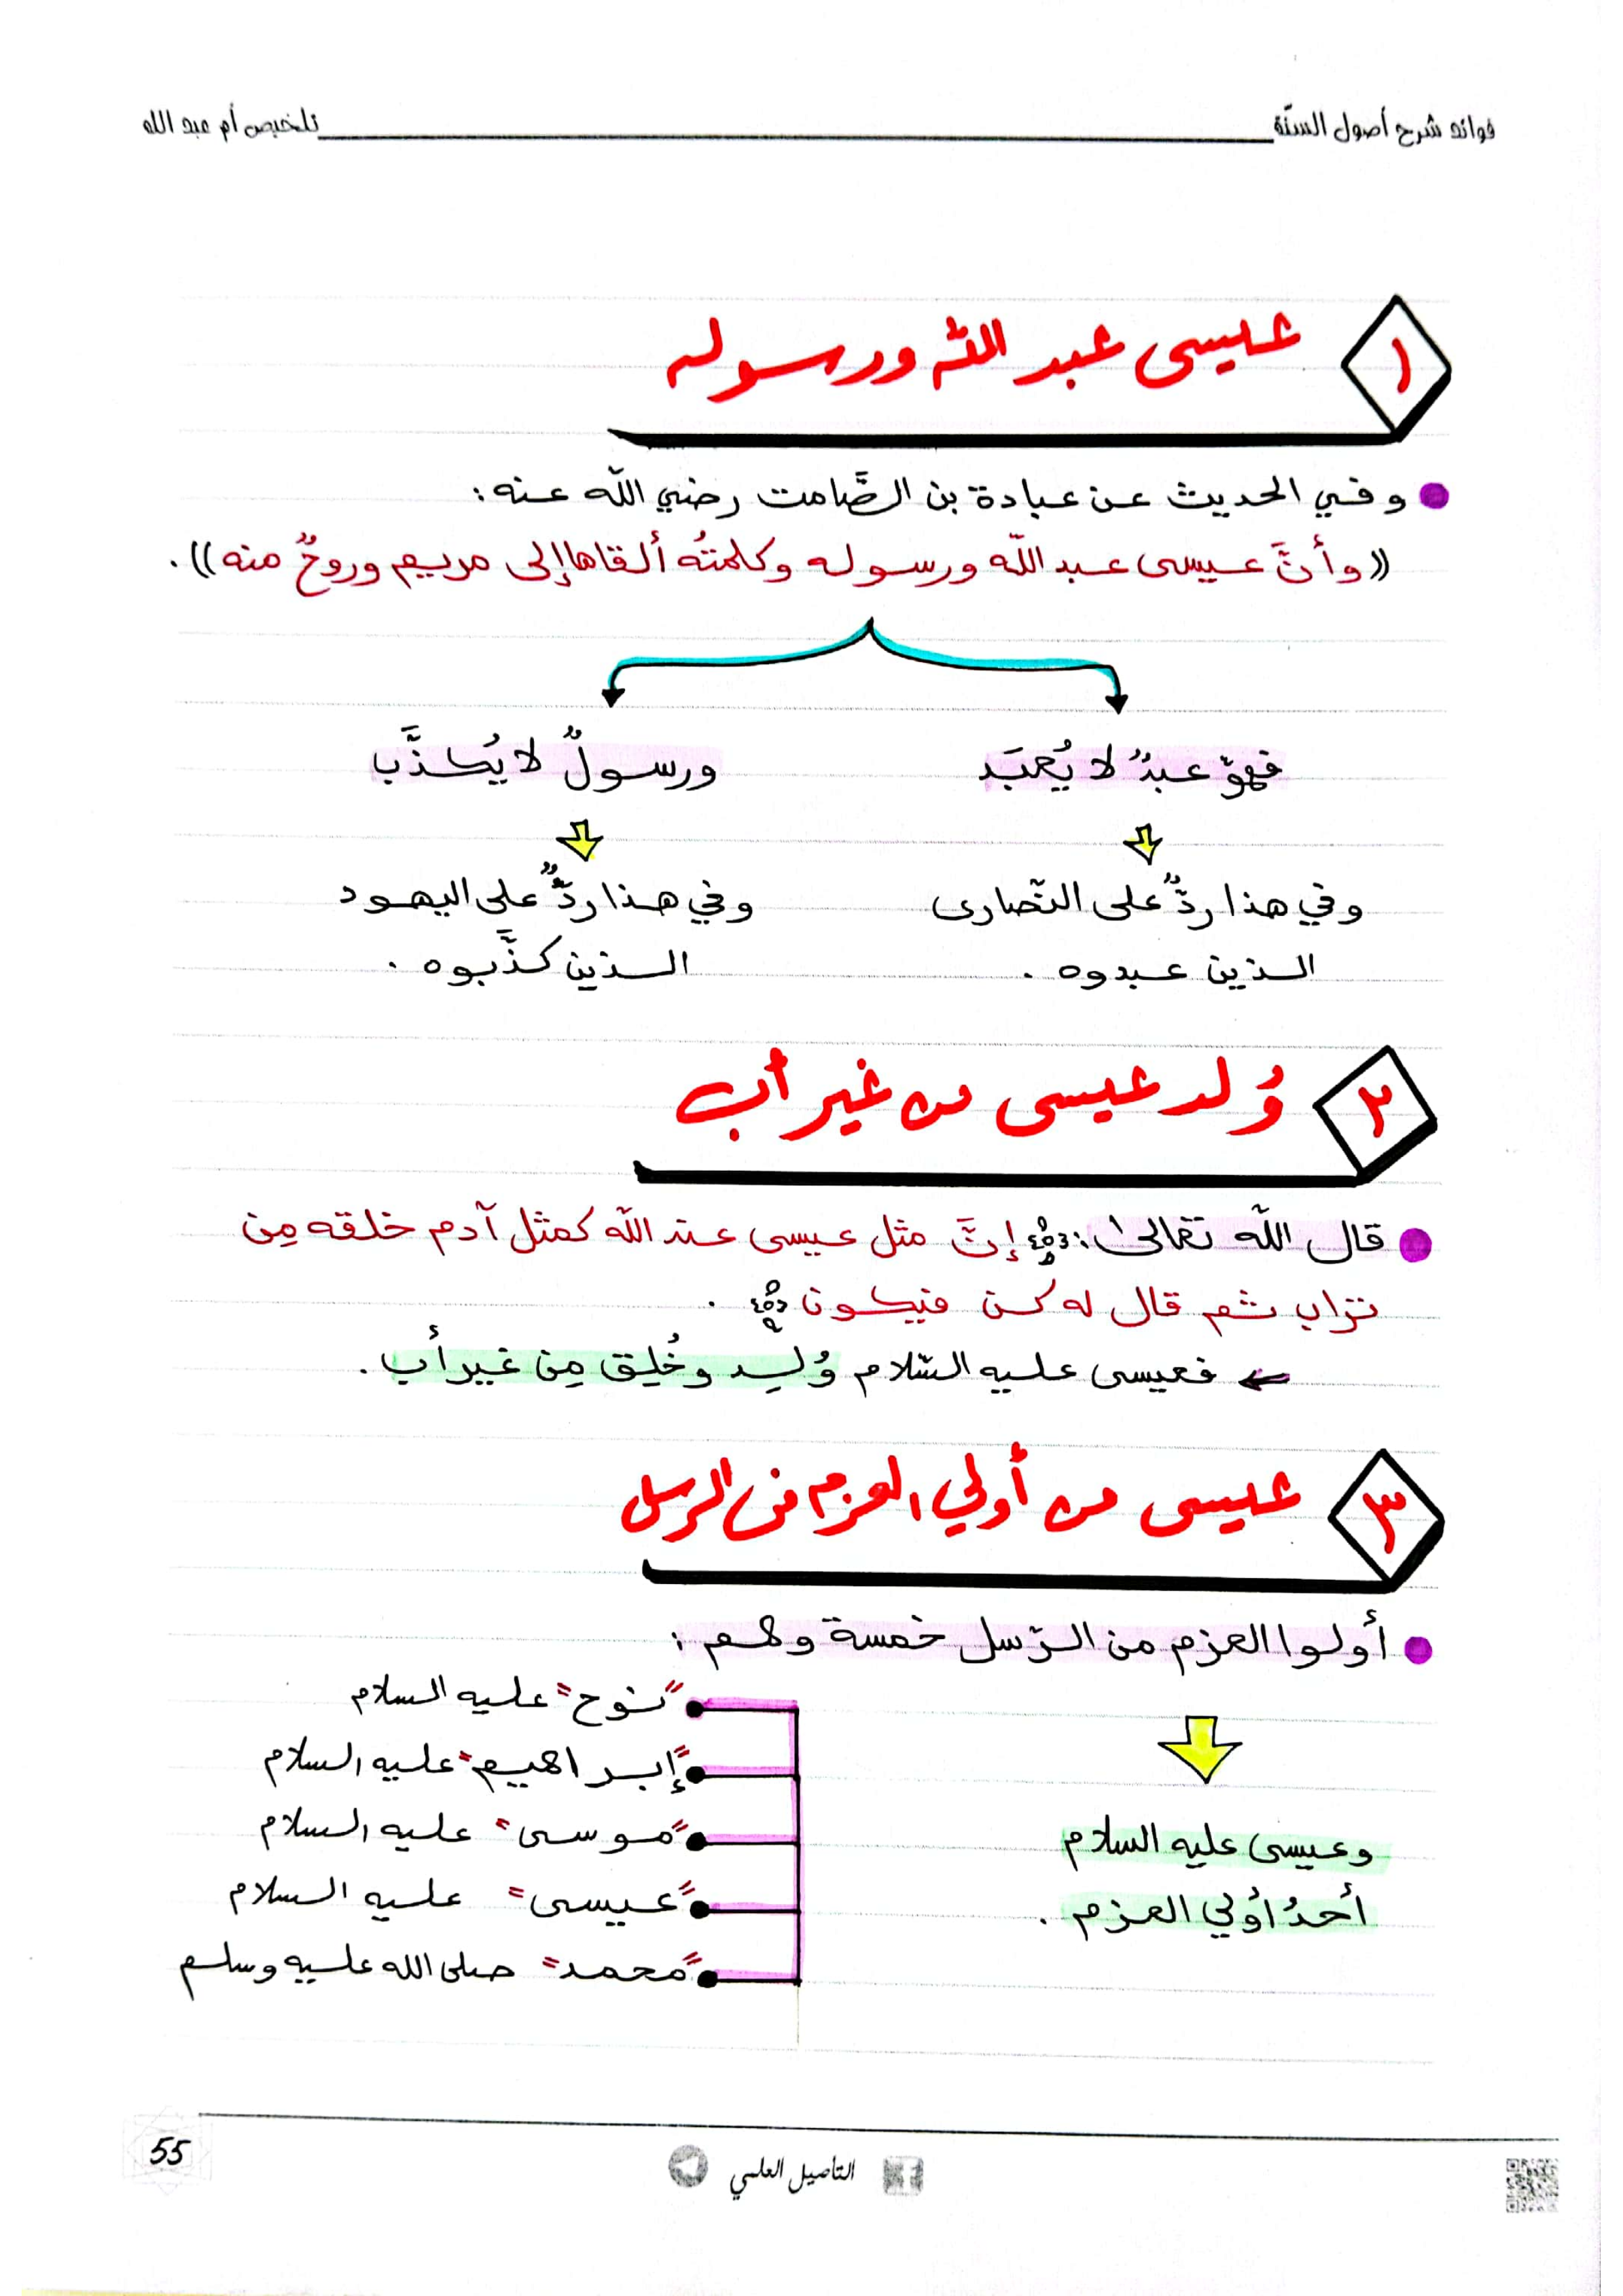 فوائد شرح أصول السنّة
تلخيص أم عبد الله
١
عيسى عبد الله ورسوله
وفي الحديث عن عبادة بن الصَّامت رضي الله عنه:
((وأنَّ عيسى عبد الله ورسوله وكلمتُه ألقاها إلى مريم وروحٌ منه)).
فهوّ عبدٌ لا يُعبَد
ورسولٌ لا يُكذَّب
وفي هذا ردٌّ على النّصارى
الذين عبدوه.
وفي هذا ردٌّ على اليهود
الذين كذَّبوه.
٢
وُلد عيسى من غير أب
قال الله تعالى: ﴿إنَّ مثل عيسى عند الله كمثل آدم خلقه مِن
تراب ثم قال له كن فيكون﴾.
فعيسى عليه السّلام وُلِد وخُلِق مِن غير أب.
٣
عيسى من أولي العزم من الرسل
أولوا العزم من الرّسل خمسة وهم:
وعيسى عليه السلام
أحدُ أوُلي العزم.
"نوح" عليه السلام
"إبراهيم" عليه السلام
"موسى" عليه السلام
"عيسى" عليه السلام
"محمد" صلى الله عليه وسلم
التأصيل العلمي
55